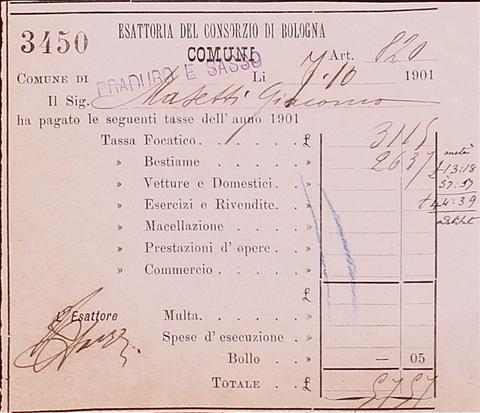 3450
ESATTORIA DEL CONSORZIO DI BOLOGNA
COMUNI
Art. 820
COMUNE DI PRADURO E SASSO Li 7.10 1901
Il Sig. Masetti Giacomo
ha pagato le seguenti tasse dell'anno 1901
Tassa Focatico £ 31 15
» Bestiame » 26 37
» Vetture e Domestici. »
» Esercizi e Rivendite. »
» Macellazione »
» Prestazioni d'opere. »
» Commercio »
metà
13:18
57:57
44:39
£
L'Esattore
Multa. »
Spese d'esecuzione. »
Bollo » — 05
TOTALE £ 57 57